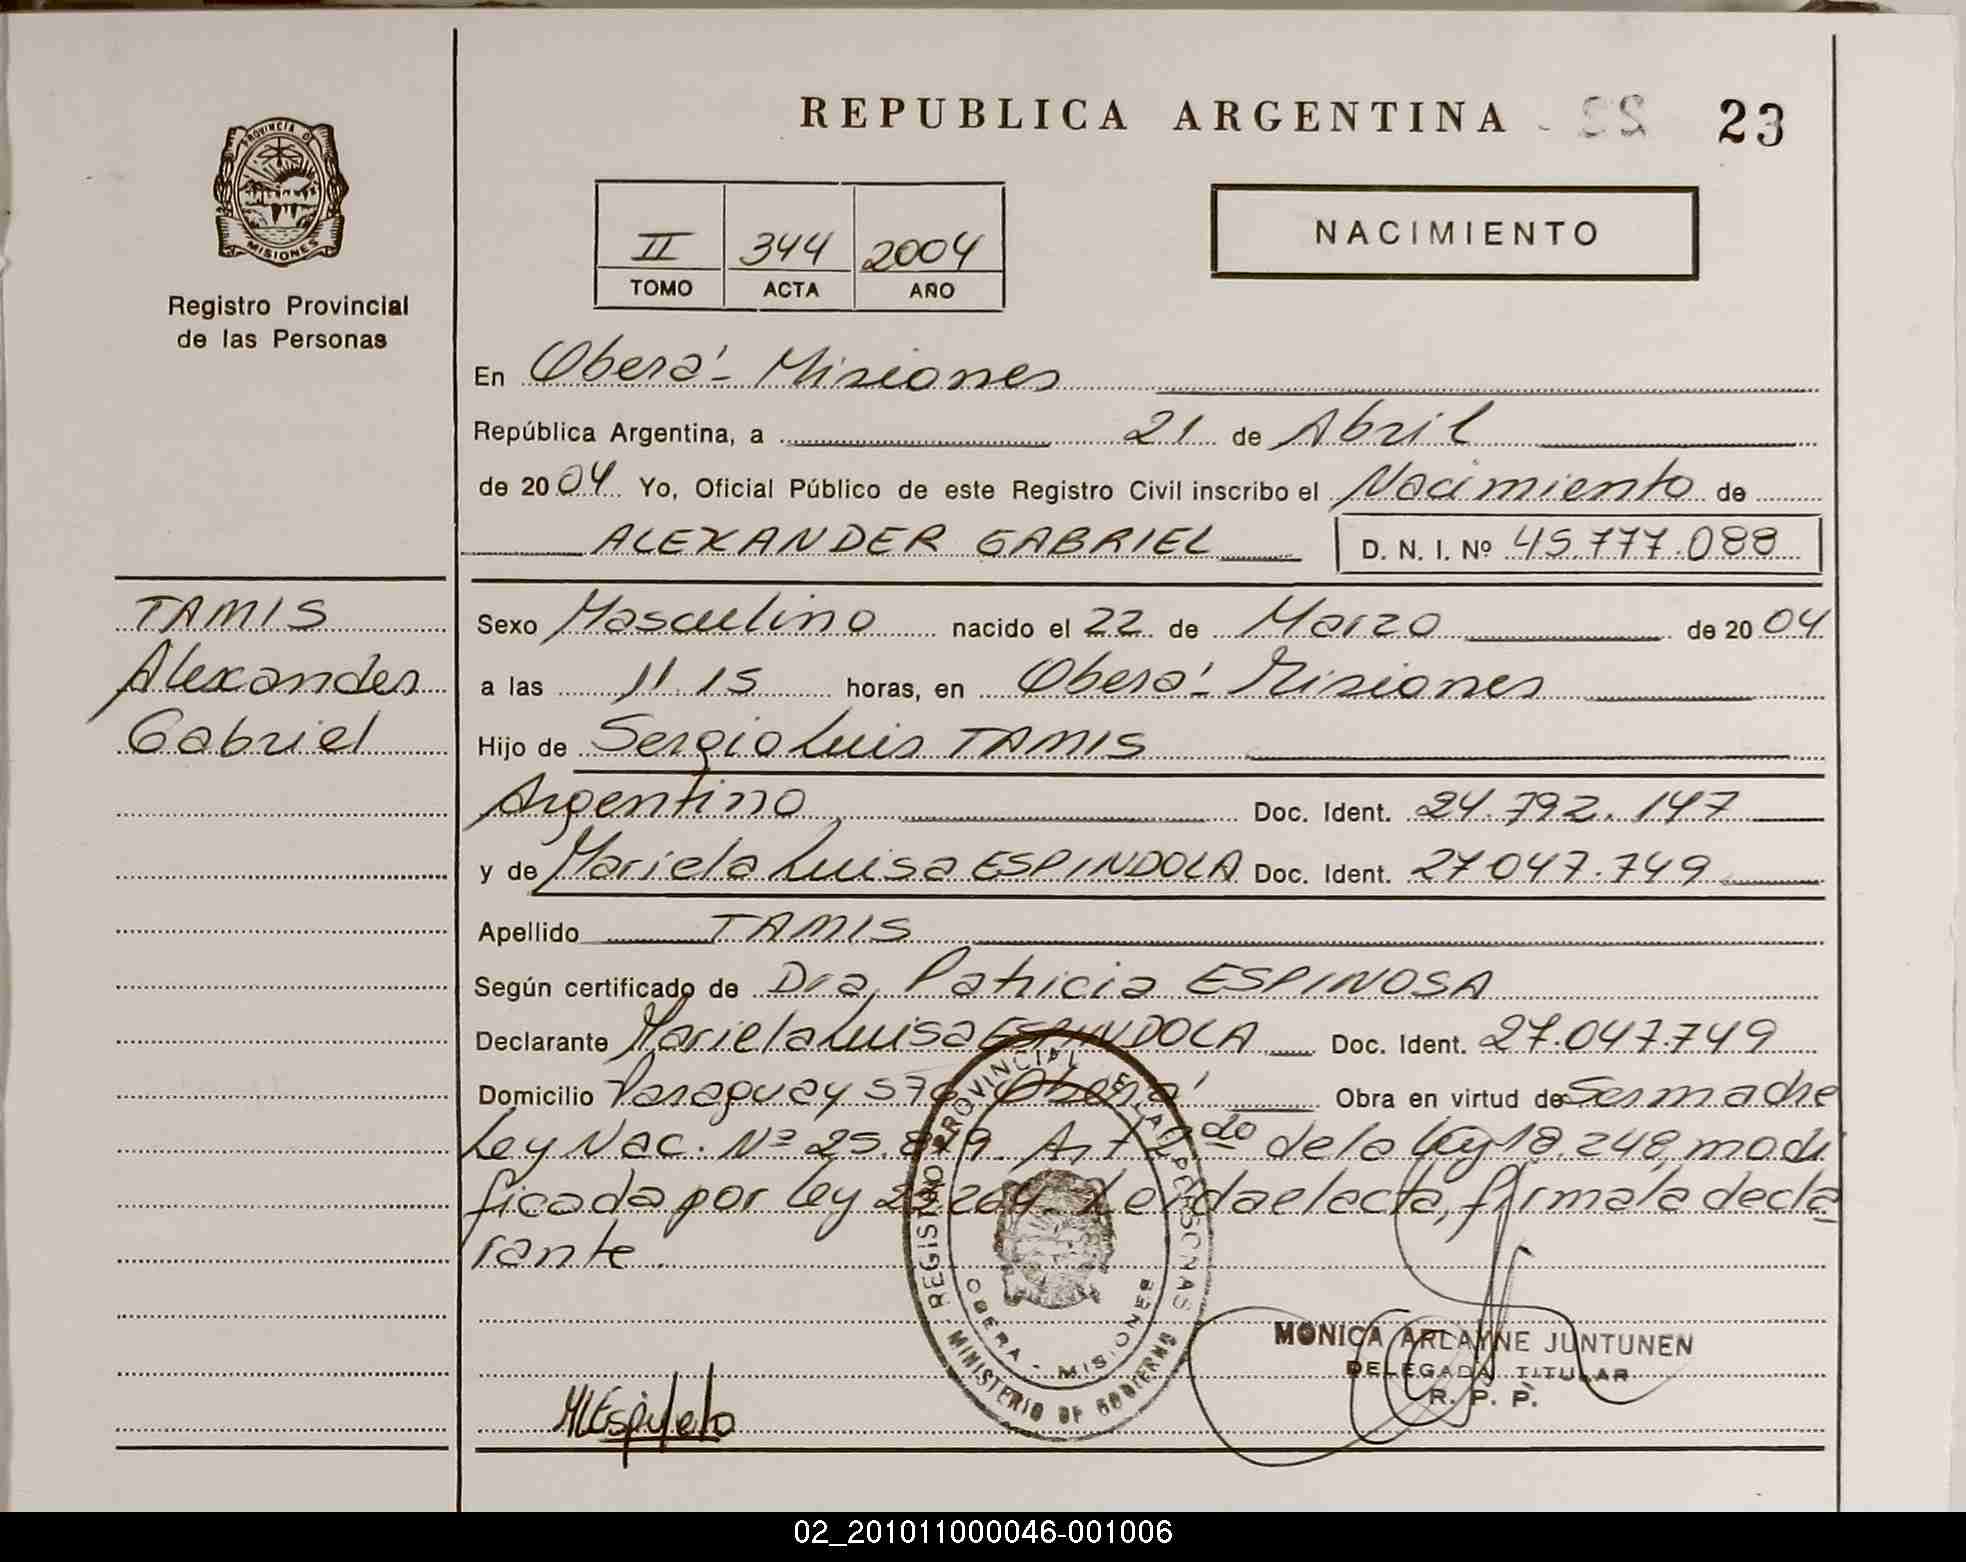 REPUBLICA ARGENTINA
22
23
PROVINCIA DE
MISIONES
Registro Provincial
de las Personas
II 344 2004
TOMO ACTA AÑO
NACIMIENTO
En Oberá - Misiones
República Argentina, a 21 de Abril
de 2004 Yo, Oficial Público de este Registro Civil inscribo el Nacimiento de
ALEXANDER GABRIEL D. N. I. Nº 45.777.088
TAMIS
Alexander
Gabriel
Sexo Masculino nacido el 22 de Marzo de 2004
a las 11.15 horas, en Oberá - Misiones
Hijo de Sergio Luis TAMIS
Argentino Doc. Ident. 24.792.147
y de Mariela Luisa ESPINDOLA Doc. Ident. 27.047.749
Apellido TAMIS
Según certificado de Dra. Patricia ESPINOSA
Declarante Mariela Luisa ESPINDOLA Doc. Ident. 27.047.749
Domicilio Paraguay 570 Oberá Obra en virtud de Ser madre
Ley Nac. Nº 25.819. Art 2do de la Ley 18.248, modi
ficada por ley Leida el acta, firma la decla
rante.
REGISTRO PROVINCIAL DE LAS PERSONAS
OBERA - MISIONES
MINISTERIO DE GOBIERNO
MONICA ARLAYNE JUNTUNEN
DELEGADA TITULAR
R. P. P.
02_201011000046-001006